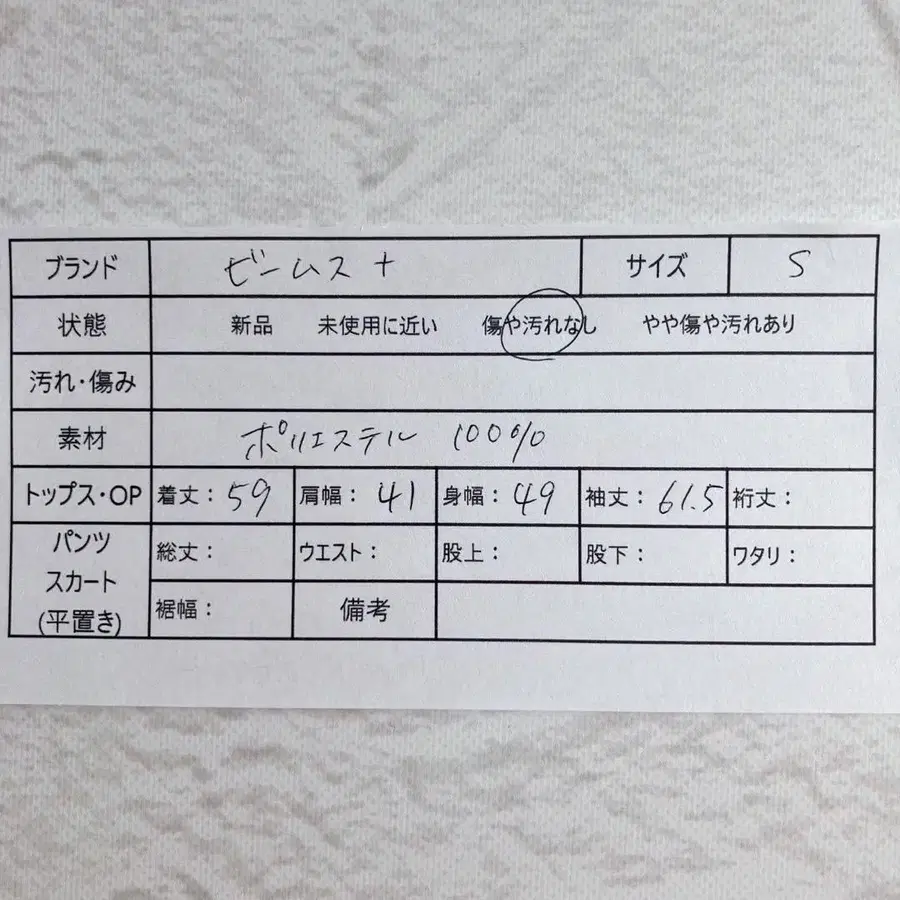 ブランド ビームス＋ サイズ S
状態 新品 未使用に近い 傷や汚れなし やや傷や汚れあり
汚れ・傷み
素材 ポリエステル 100%
トップス・OP 着丈：59 肩幅：41 身幅：49 袖丈：61.5 裄丈：
パンツ
スカート
(平置き)
総丈： ウエスト： 股上： 股下： ワタリ：
裾幅： 備考